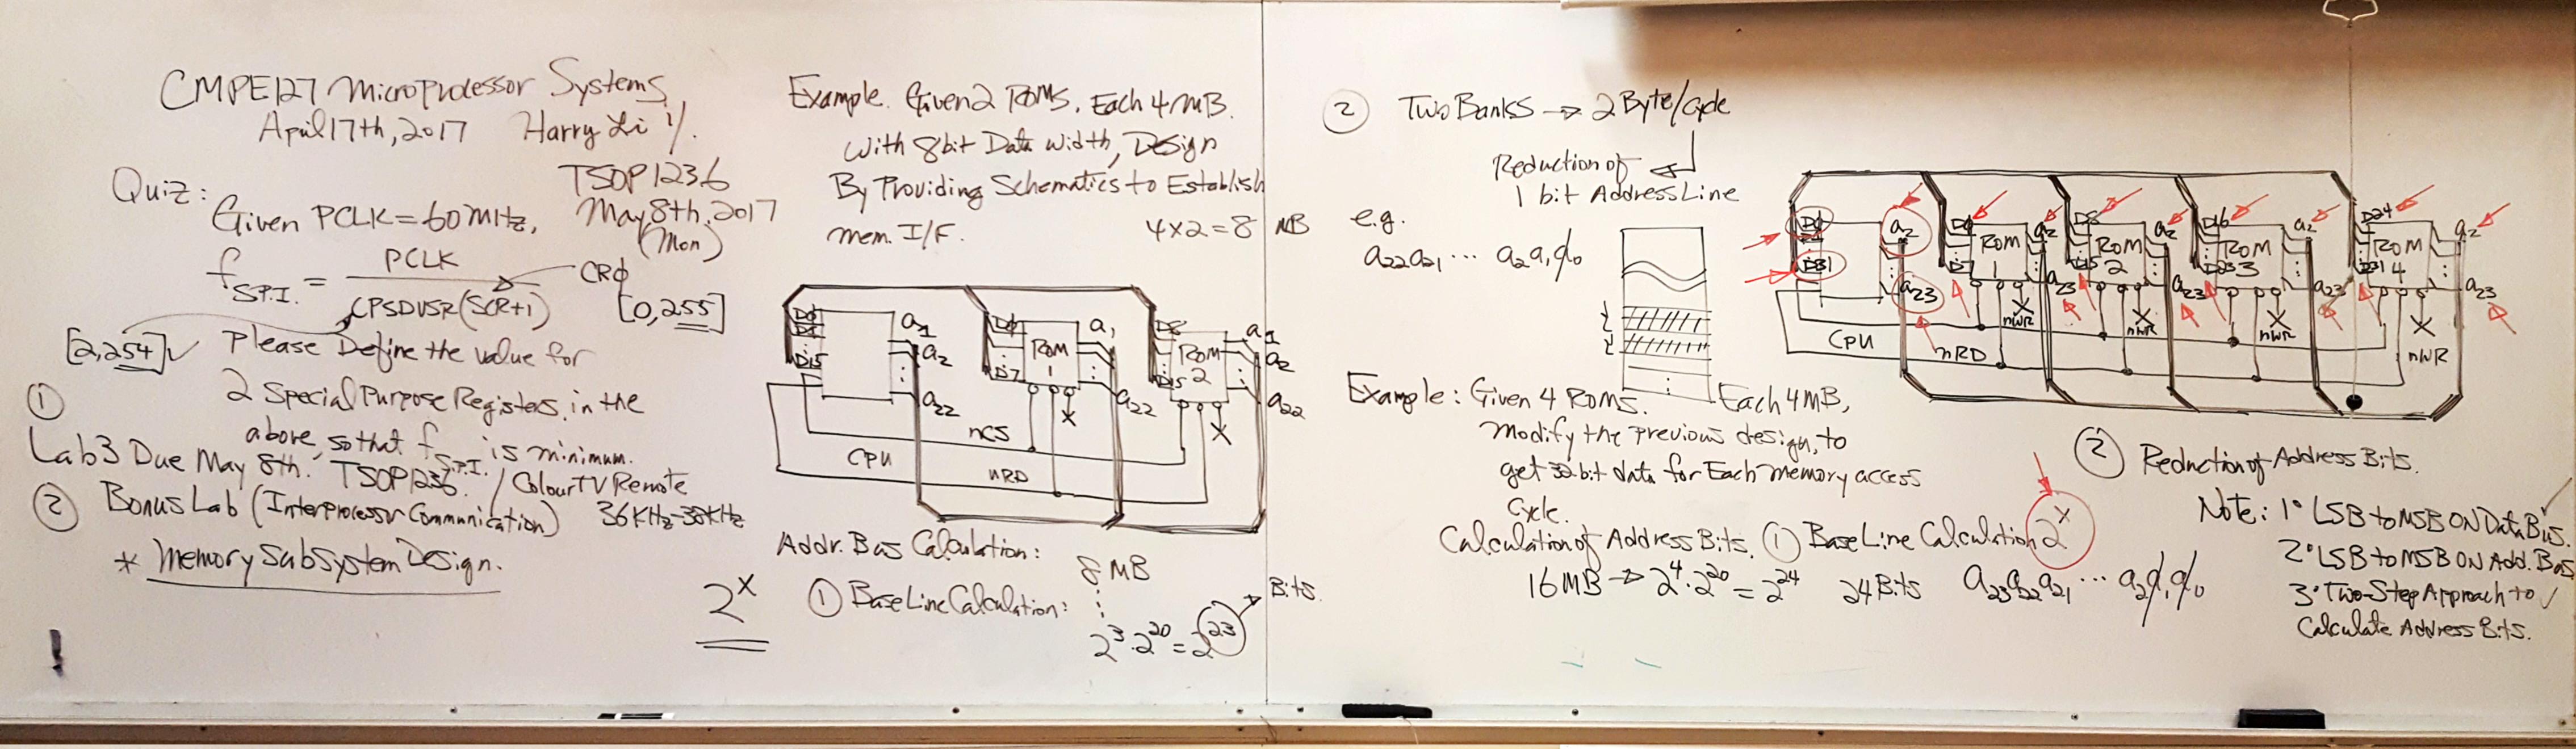 CMPE127 Microprocessor Systems
April 17th, 2017 Harry Li
Quiz:
TSOP1236
May 8th, 2017
(Mon)
Given PCLK = 60MHz,
f S.P.I. = PCLK / CPSDVSR(SCR+1)
CRφ
[0,255]
[2,254]
Please Define the value for
2 Special Purpose Registers in the
above, so that f S.P.I. is minimum.
①
Lab3 Due May 8th. TSOP1236. / Colour TV Remote
② Bonus Lab (Interprocessor Communication) 36KHz-38KHz
* Memory Subsystem Design.
Example. Given 2 ROMs. Each 4MB.
With 8bit Data Width, Design
By Providing Schematics to Establish
mem. I/F.
4x2=8 MB
D0
D1
D15
a1
a2
a22
D0
D7
ROM
1
a1
a22
X
D8
D15
ROM
2
a1
a2
a22
X
nCS
CPU
nRD
Addr. Bus Calculation:
2^x
① BaseLine Calculation:
8 MB
2^3·2^20 = 2^23
Bits.
② Two Banks → 2 Byte/cycle
Reduction of
1 bit Address Line
e.g.
a22a21 ··· a2a1a0
Example: Given 4 ROMs. Each 4MB,
Modify the previous design, to
get 32-bit data for Each memory access
Cycle.
Calculation of Address Bits. ① BaseLine Calculation 2^x
16MB → 2^4·2^20 = 2^24 24Bits a23a22a21 ··· a2a1a0
D0
D1
D31
a2
a23
D0
D7
ROM
1
a2
a23
X
nWR
D8
D15
ROM
2
a2
a23
X
nWR
D16
D23
ROM
3
a2
a23
X
nWR
D24
D31
ROM
4
a2
a23
X
nWR
CPU
nRD
② Reduction of Address Bits.
Note: 1° LSB to MSB ON Data Bus.
2° LSB to MSB ON Add. Bus
3° Two-Step Approach to
Calculate Address Bits.